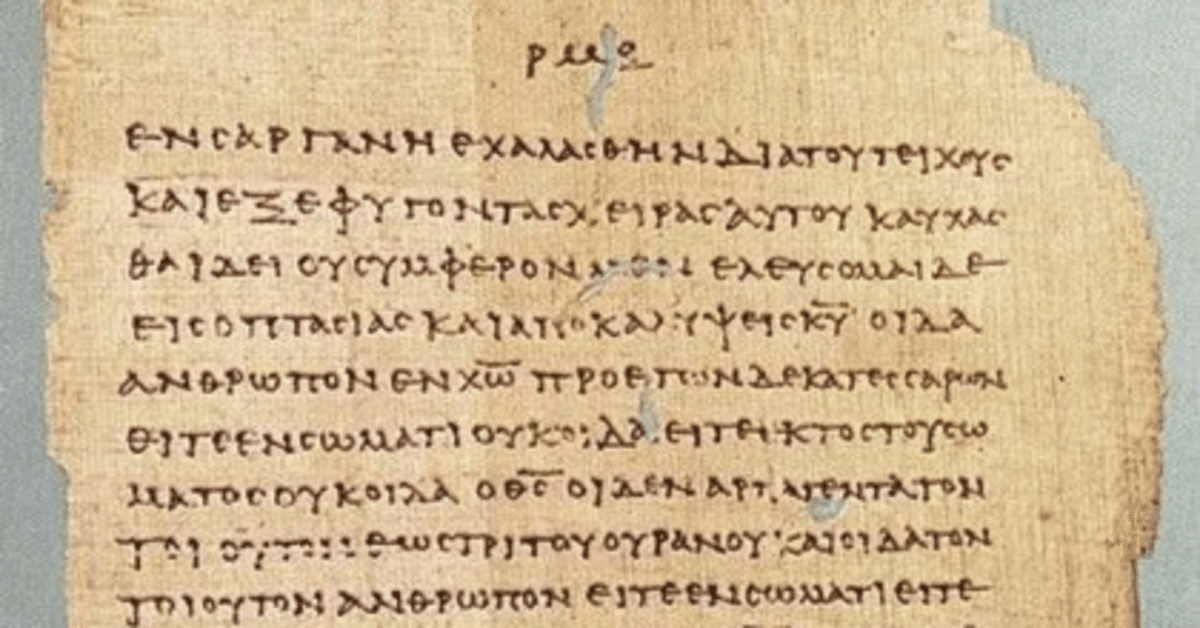 ρμθ
ΕΝ ϹΑΡΓΑΝΗ ΕΧΑΛΑϹΘΗΝ ΔΙΑ ΤΟΥ ΤΕΙΧΟΥϹ
ΚΑΙ ΕΞΕΦΥΓΟΝ ΤΑϹ ΧΕΙΡΑϹ ΑΥΤΟΥ ΚΑΥΧΑϹ
ΘΑΙ ΔΕΙ ΟΥ ϹΥΜΦΕΡΟΝ ΕΛΕΥϹΟΜΑΙ ΔΕ
ΕΙϹ ΟΠΤΑϹΙΑϹ ΚΑΙ ΑΠΟΚΑΛΥΨΕΙϹ Κ̅Υ̅ ΟΙΔΑ
ΑΝΘΡΩΠΟΝ ΕΝ Χ̅Ω̅ ΠΡΟ ΕΤΩΝ ΔΕΚΑΤΕϹϹΑΡΩΝ
ΕΙΤΕ ΕΝ ϹΩΜΑΤΙ ΟΥΚ ΟΙΔΑ ΕΙΤΕ ΕΚΤΟϹ ΤΟΥ ϹΩ
ΜΑΤΟϹ ΟΥΚ ΟΙΔΑ Ο Θ̅Ϲ̅ ΟΙΔΕΝ ΑΡΠΑΓΕΝΤΑ ΤΟΝ
ΤΟΙΟΥΤΟΝ ΕΩϹ ΤΡΙΤΟΥ ΟΥΡΑΝΟΥ ΚΑΙ ΟΙΔΑ ΤΟΝ
ΤΟΙΟΥΤΟΝ ΑΝΘΡΩΠΟΝ ΕΙΤΕ ΕΝ ϹΩΜΑΤΙ ΕΙΤΕ